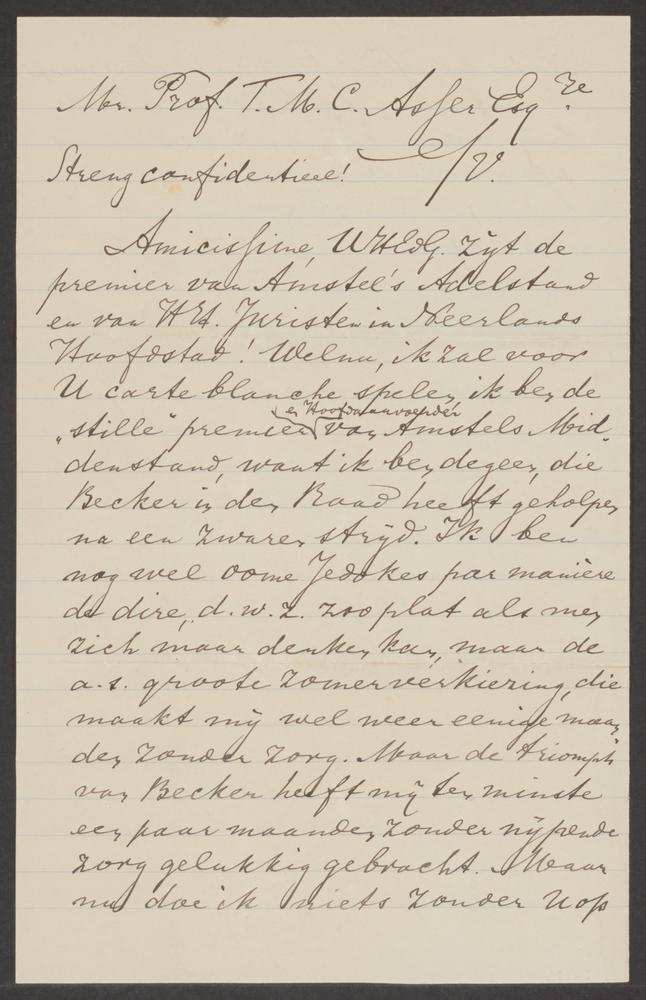 Mr. Prof. T. M. C. Asser Esq.re
Streng confidentieel! S/V.
Amicissime, WHEdG. zijt de
premier van Amstel's Adelstand
en van HH. Juristen in Neerlands
Hoofdstad! Welnu, ik zal voor
U carte blanche spelen, ik ben de
en Hoofdaanvoerder
„stille" premier van Amstels Mid-
denstand, want ik ben degeen, die
Becker in den Raad heeft geholpen
na een zwaren strijd. Ik ben
nog wel oome Jedokes par manière
de dire, d.w.z. zoo plat als men
zich maar denken kan, maar de
a.s. groote zomerverkiezing, die
maakt mij wel weer eenige maan
den zonder zorg. Maar de triomph
van Becker heeft mij ten minste
een paar maanden zonder nijpende
zorg gelukkig gebracht. Maar
nu doe ik niets zonder U op